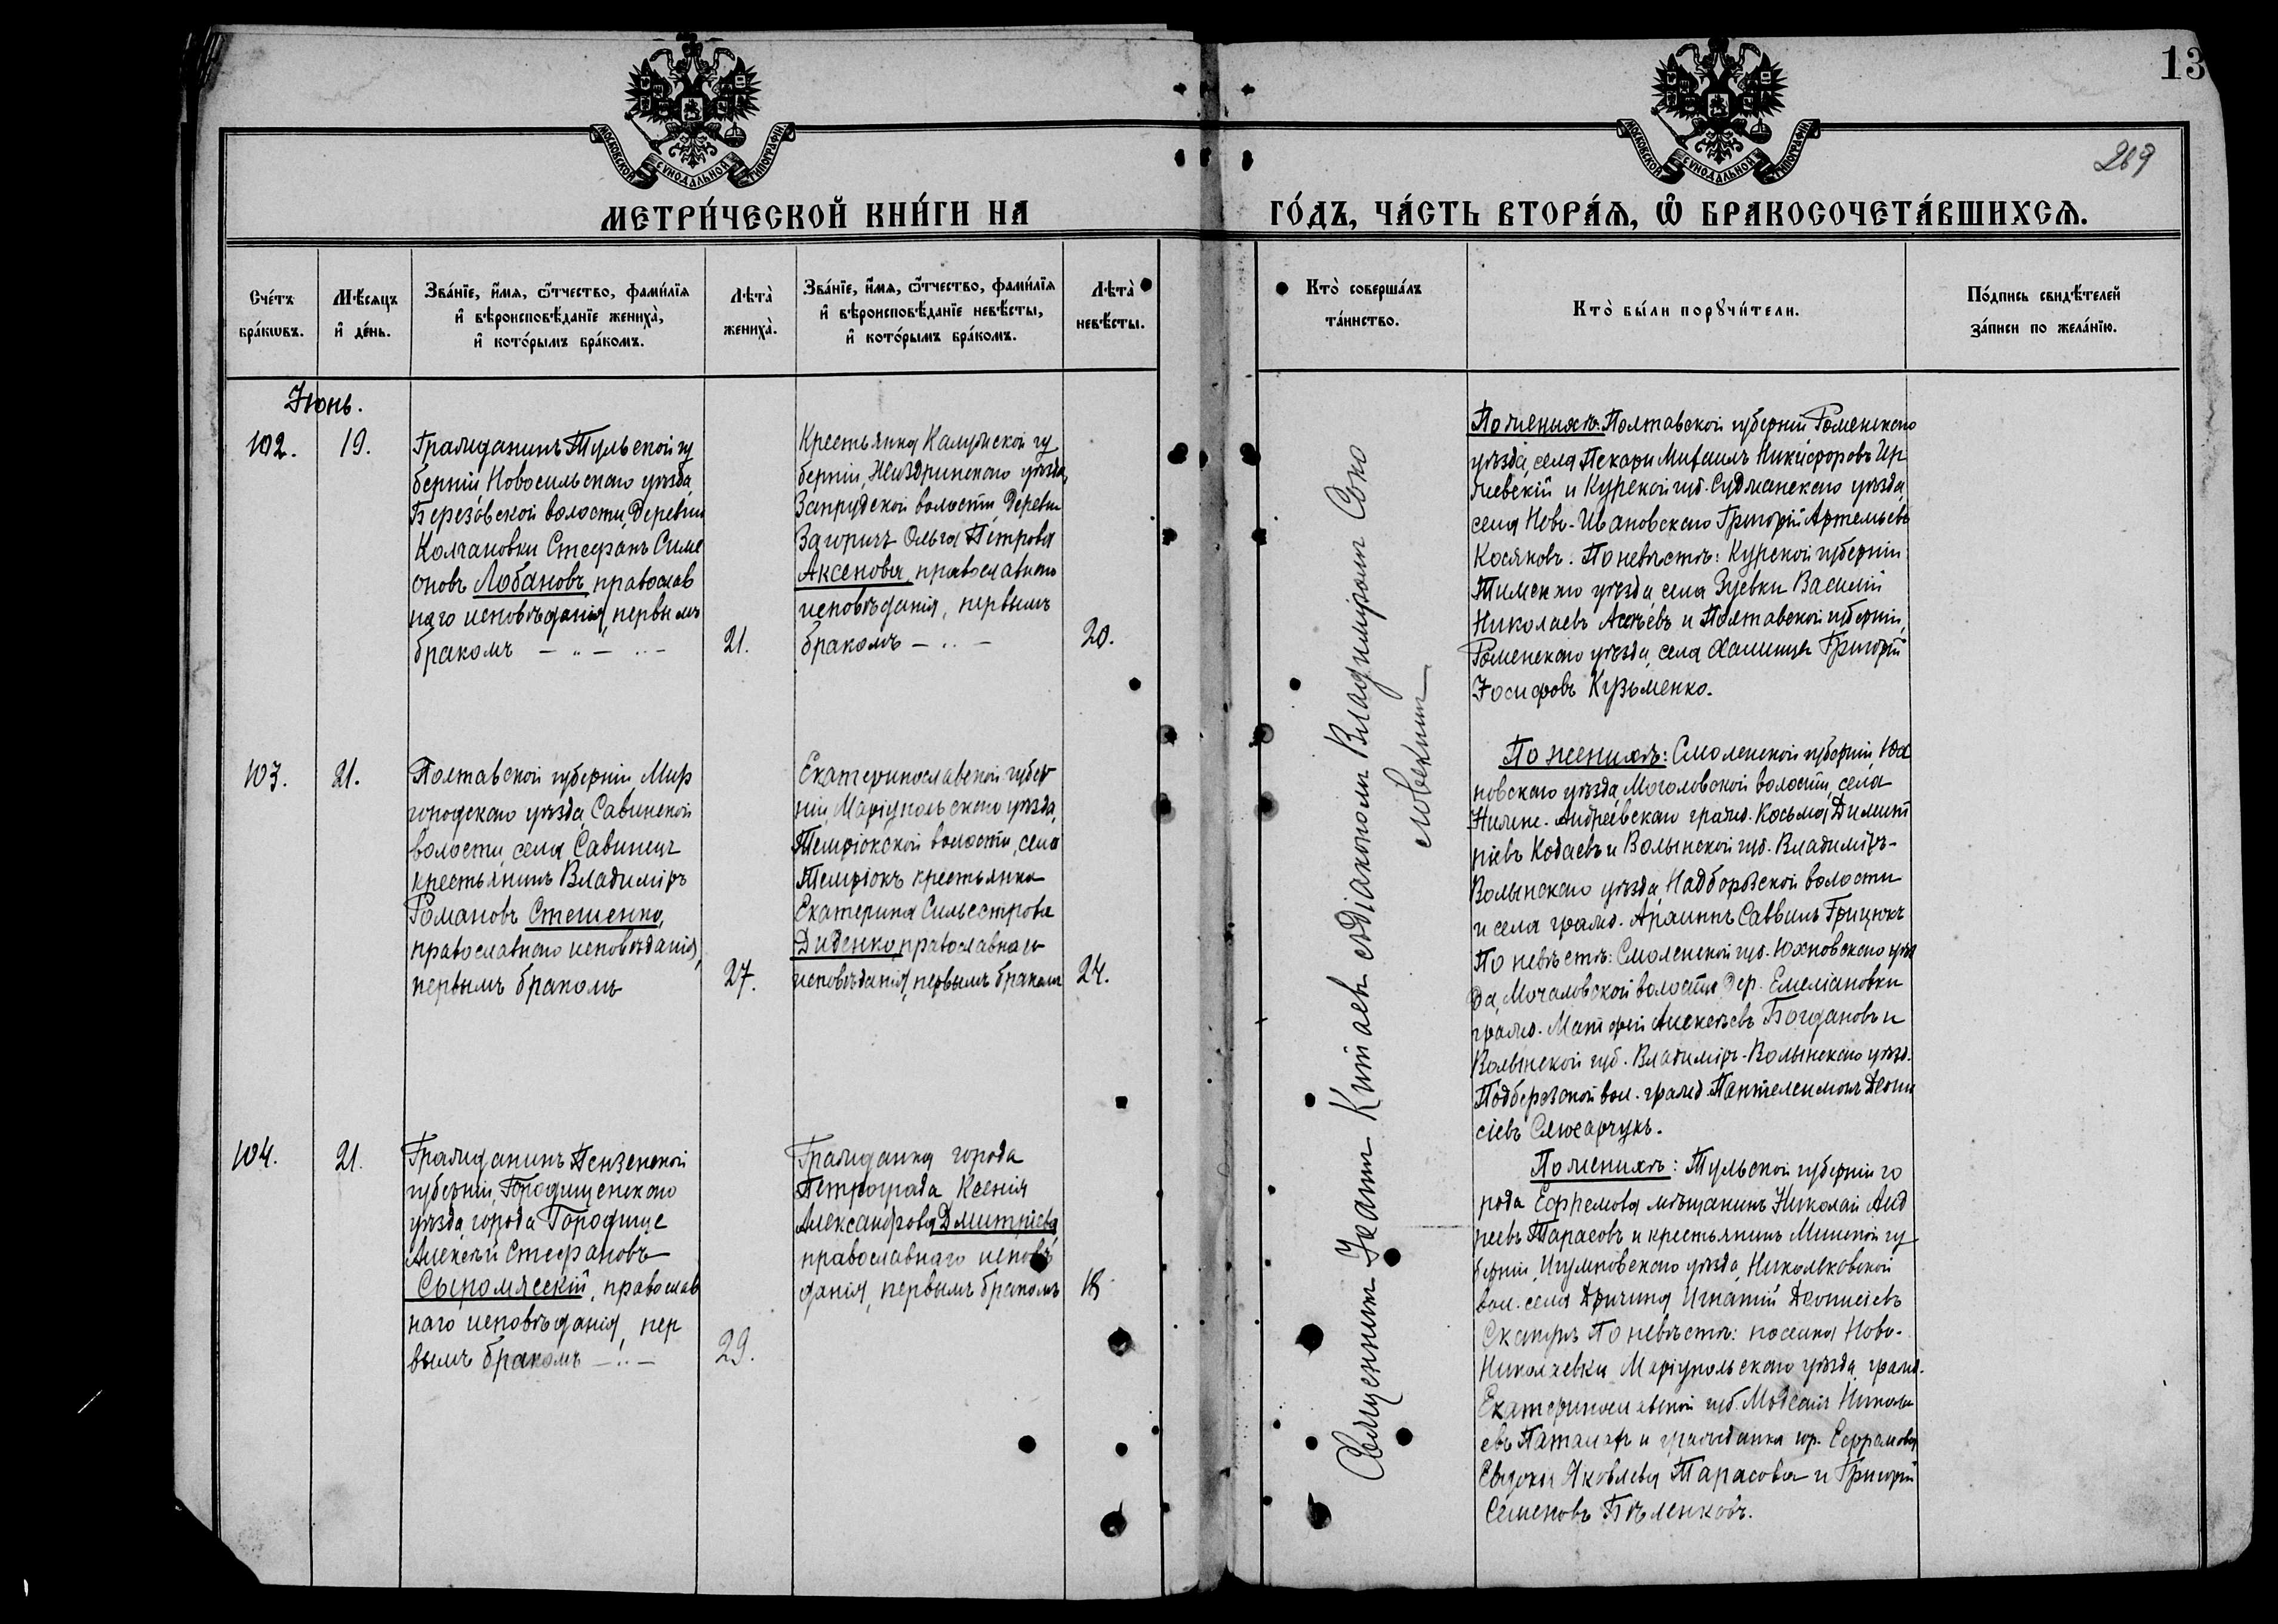 13
269
МОСКОВСКОЙ СѴНОДАЛЬНОЙ ТИПОГРАФІИ
МОСКОВСКОЙ СѴНОДАЛЬНОЙ ТИПОГРАФІИ
МЕТРИ́ЧЕСКОЙ КНИ́ГИ НА ГО́ДЪ, ЧА́СТЬ ВТОРА́Я, Ѽ БРАКОСОЧЕТА́ВШИХСЯ.
Сче́тъ
бра́кѡвъ.
Мѣ́сяцъ
и҆ де́нь.
Зва́нїе, и҆́мя, ѻ҆́тчество, фами́лїя
и҆ вѣроисповѣ́данїе жениха̀,
и҆ кото́рымъ бра́комъ.
Лѣта̀
жениха̀.
Зва́нїе, и҆́мя, ѻ҆́тчество, фами́лїя
и҆ вѣроисповѣ́данїе невѣ́сты,
и҆ кото́рымъ бра́комъ.
Лѣта̀
невѣ́сты.
Кто̀ соверша́лъ
та́инство.
Кто̀ бы́ли порꙋчи́тели.
По́дпись свидѣ́телей
за́писи по жела́нїю.
Іюнь.
102.
19.
Гражданинъ Тульской гу
берніи Новосильскаго уѣзда,
Березовской волости, деревни
Колчановки Стефанъ Симе
оновъ Лобановъ, православ
наго исповѣданія, первымъ
бракомъ
21.
Крестьянка Калужской гу
берніи, Жиздринскаго уѣзда,
Запрудской волости деревни
Загоричъ Ольга Петрова
Аксенова, православнаго
исповѣданія, первымъ
бракомъ
20.
По женихѣ: Полтавской губерніи Роменскаго
уѣзда, села Пекари Михаилъ Никифоровъ Ир
жевскій и Курской губ. Суджанскаго уѣзда,
села Ново-Ивановскаго Григорій Артемьевъ
Косяковъ. По невѣстѣ: Курской губерніи
Тимскаго уѣзда села Зуевки Василій
Николаевъ и Полтавской губерніи,
Роменскаго уѣзда, села Григорій
Іосифовъ Кузьменко.
103.
21.
Полтавской губерніи, Мир
городскаго уѣзда, Савинской
волости, села Савинецъ
крестьянинъ Владиміръ
Романовъ Стешенко,
православнаго исповѣданія,
первымъ бракомъ
27.
Екатеринославской губер
ніи, Маріупольскаго уѣзда,
Темрюкской волости, села
Темрюкъ крестьянка
Екатерина Сильвестрова
Диденко, православнаго
исповѣданія, первымъ бракомъ
24.
По женихѣ: Смоленской губерніи, Юх
новскаго уѣзда, волости, села
гражд. Косьма Димит
ріевъ Кобаевъ и Волынской губ. Владиміръ-
Волынскаго уѣзда, волости
и села гражд. Саввинъ Грицюкъ
По невѣстѣ: Смоленской губ. Юхновскаго уѣз
да, волости дер. Емеліановки
гражд. Матфей Алексѣевъ Богдановъ и
Волынской губ. Владиміръ-Волынскаго уѣзд.
Подберезской вол. гражд. Пантелеимонъ Діони
сіевъ Слюсарчукъ.
104.
21.
Гражданинъ Пензенской
губерніи, Городищенскаго
уѣзда, города Городище
Алексѣй Стефановъ
Сыромясскій, православ
наго исповѣданія, пер
вымъ бракомъ
29.
Гражданка города
Петрограда Ксенія
Александрова Дмитріева
православнаго исповѣ
данія, первымъ бракомъ
18
По женихѣ: Тульской губерніи го
рода Ефремова мѣщанинъ Николай Анд
реевъ Тарасовъ и крестьянинъ Минской гу
берніи, Игуменскаго уѣзда,
вол. села Дричина Игнатій Діонисіевъ
По невѣстѣ: поселка Ново-
Николаевки Маріупольскаго уѣзда гражд.
Екатеринославской губ. Николаи
евъ и гражданка гор. Ефремова
Евдокія Яковлева Тарасова и Григорій
Семеновъ Бѣленковъ.
Священникъ Іоаннъ Китаевъ съ діакономъ Владиміромъ Соко
ловскимъ